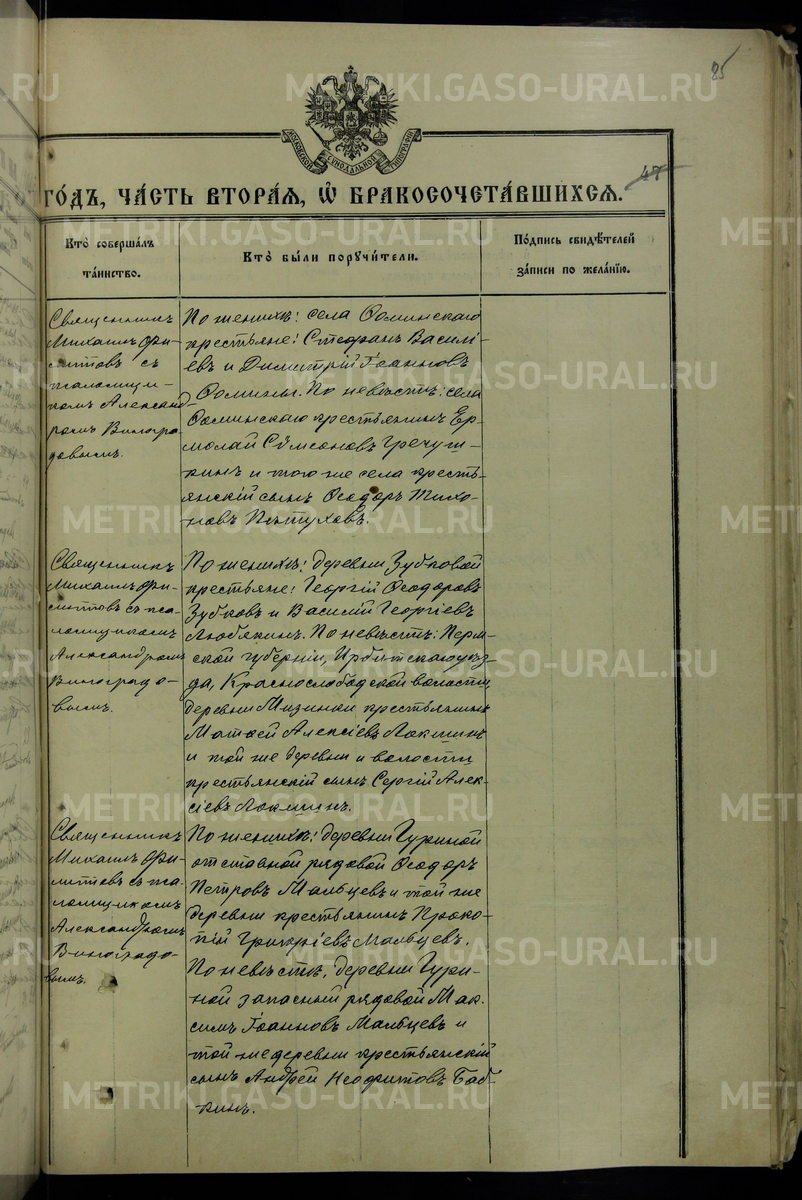 85
47
МОСКОВСКОЙ СѴНОДАЛЬНОЙ ТИПОГРАФІИ
ГО́ДЪ, ЧА́СТЬ ВТОРА́Ѧ, Ѡ҆ БРАКОСОЧЕТА́ВШИХСѦ.
Кто̀ соверша́лъ
та́инство.
Кто̀ бы́ли порꙋчи́тели.
По́дпись свидѣ́телей
за́писи по жела́нїю.
Священникъ
Михаилъ Фи-
литовъ съ
псаломщи-
комъ Александ-
ромъ Виногра-
довымъ.
По женихѣ: села Ѳоминскаго
крестьяне: Стефанъ Василі-
евъ и Димитрій Іоанновъ
Ѳомины. По невѣстѣ: села
Ѳоминскаго крестьянинъ Ер-
молай Сѵмеоновъ Гречуш-
кинъ и того же села кресть-
янскій сынъ Ѳеодоръ Тихо-
новъ Пѣтуховъ.
Священникъ
Михаилъ Фи-
литовъ съ пса-
ломщикомъ
Александромъ
Виноградо-
вымъ.
По женихѣ: деревни Зубковой
крестьяне: Георгій Ѳеодоровъ
Зубковъ и Василій Георгіевъ
Любякинъ. По невѣстѣ: Перм-
ской губерніи, Ирбитскаго уѣз-
да, Краснослободской волости,
деревни Мизинки крестьянинъ
Матѳей Алексіевъ Локшинъ
и той же деревни и волости
крестьянскій сынъ Сергій Алек-
сіевъ Локшинъ.
Священникъ
Михаилъ Фи-
литовъ съ пса-
ломщикомъ
Александромъ
Виноградо-
вымъ.
По женихѣ: деревни Гуриной
отставной рядовой Ѳеодоръ
Петровъ Мальцевъ и той же
деревни крестьянинъ Проко-
пій Григоріевъ Мальцевъ.
По невѣстѣ, деревни Гури-
ной запасный рядовой Мак-
симъ Іоанновъ Мальцевъ и
той же деревни крестьянскій
сынъ Андрей Неофитовъ Баб-
кинъ.
METRIKI.GASO-URAL.RU